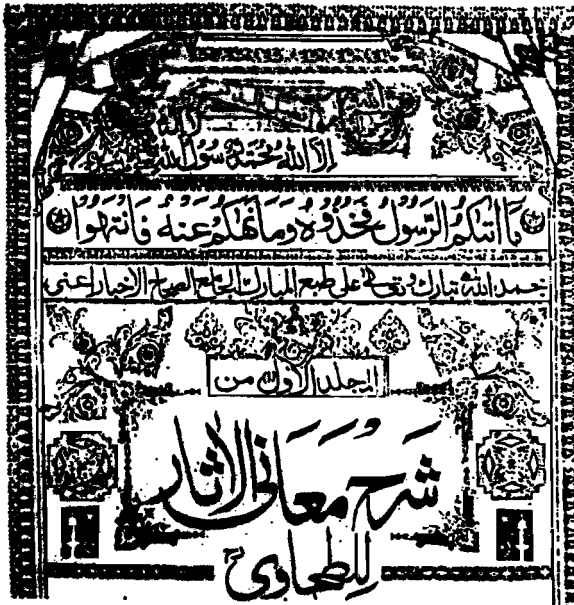 لا إله
إلا الله محمد رسول الله
مَا اٰتٰىكُمُ الرَّسُوْلُ فَخُذُوْهُ وَمَا نَهٰىكُمْ عَنْهُ فَانْتَهُوْا
بحمد الله تبارك وتعالى على طبع المبارك الجامع الصحاح الاخبار اعنى
المجلد الاول من
شَرح مَعَانى الاثار
للطحاوى